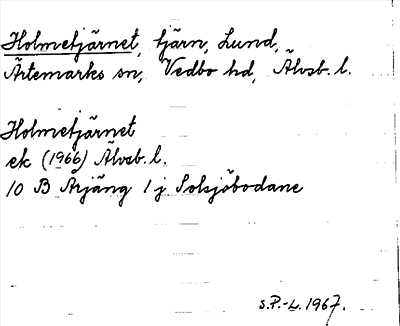 Holmetjärnet, tjärn, Lund,
Ärtemarks sn, Vedbo hd, Älvsb. l.
Holmetjärnet
ek (1966) Älvsb. l.
10 B Årjäng 1 j Solsjöbodane
S.P.-L. 1967.